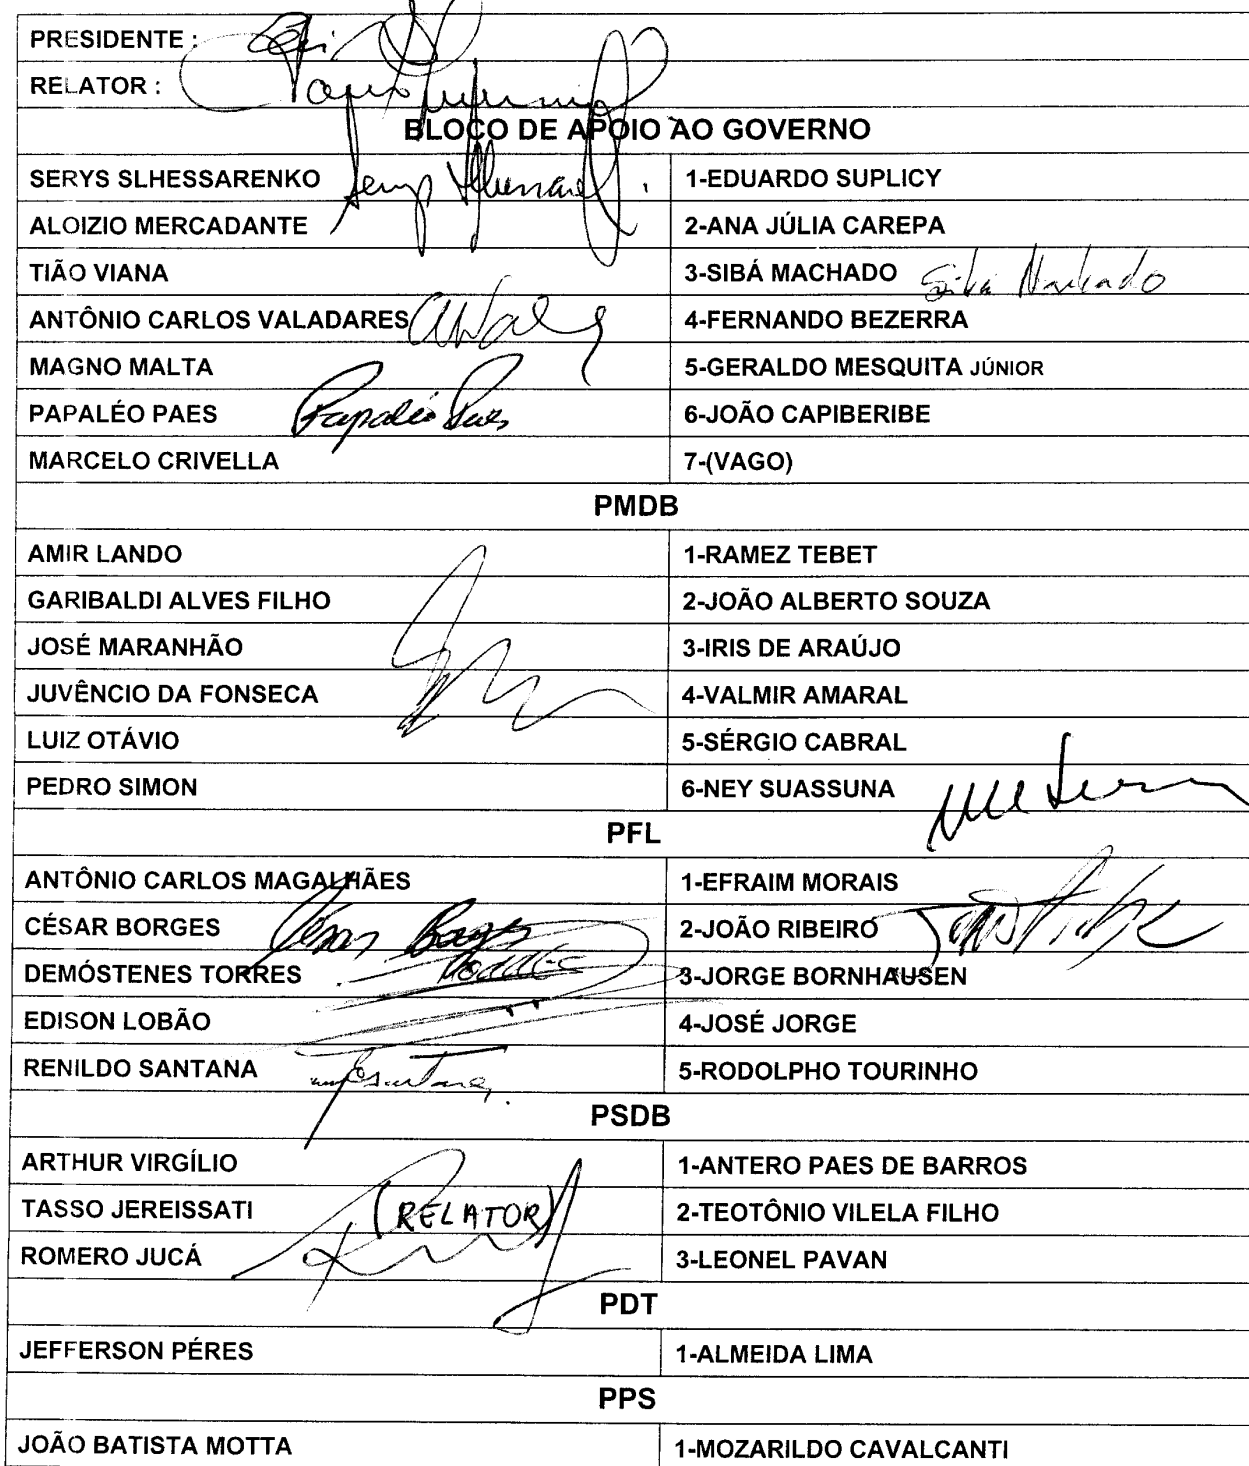 PRESIDENTE :
RELATOR :
BLOCO DE APOIO AO GOVERNO
SERYS SLHESSARENKO 1-EDUARDO SUPLICY
ALOIZIO MERCADANTE 2-ANA JÚLIA CAREPA
TIÃO VIANA 3-SIBÁ MACHADO Sibá Machado
ANTÔNIO CARLOS VALADARES 4-FERNANDO BEZERRA
MAGNO MALTA 5-GERALDO MESQUITA JÚNIOR
PAPALÉO PAES Papaléo Paes 6-JOÃO CAPIBERIBE
MARCELO CRIVELLA 7-(VAGO)
PMDB
AMIR LANDO 1-RAMEZ TEBET
GARIBALDI ALVES FILHO 2-JOÃO ALBERTO SOUZA
JOSÉ MARANHÃO 3-IRIS DE ARAÚJO
JUVÊNCIO DA FONSECA 4-VALMIR AMARAL
LUIZ OTÁVIO 5-SÉRGIO CABRAL
PEDRO SIMON 6-NEY SUASSUNA
PFL
ANTÔNIO CARLOS MAGALHÃES 1-EFRAIM MORAIS
CÉSAR BORGES César Borges 2-JOÃO RIBEIRO
DEMÓSTENES TORRES 3-JORGE BORNHAUSEN
EDISON LOBÃO 4-JOSÉ JORGE
RENILDO SANTANA 5-RODOLPHO TOURINHO
PSDB
ARTHUR VIRGÍLIO 1-ANTERO PAES DE BARROS
TASSO JEREISSATI (RELATOR) 2-TEOTÔNIO VILELA FILHO
ROMERO JUCÁ 3-LEONEL PAVAN
PDT
JEFFERSON PÉRES 1-ALMEIDA LIMA
PPS
JOÃO BATISTA MOTTA 1-MOZARILDO CAVALCANTI